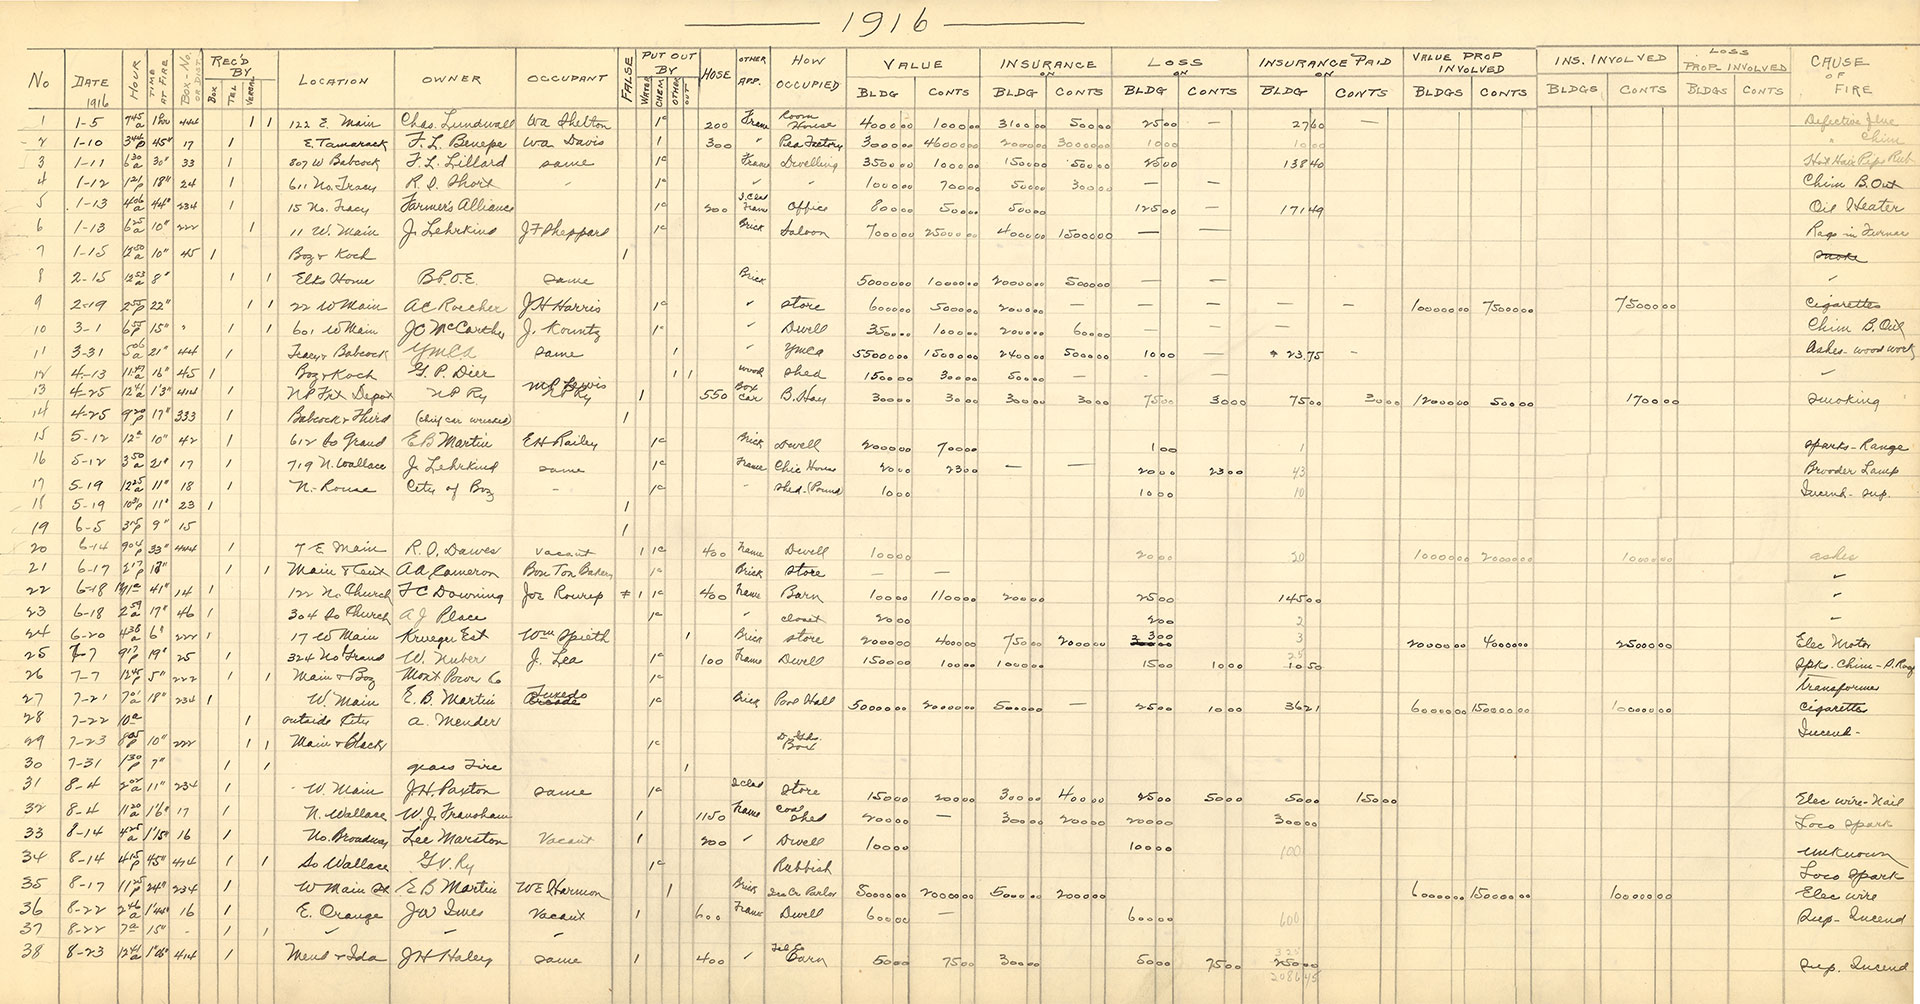 1916
No DATE 1916 HOUR TIME AT FIRE BOX-NO. OR DIST. REC'D BY BOX TEL VERBAL LOCATION OWNER OCCUPANT FALSE PUT OUT BY WATER CHEM OTHER OUT HOSE OTHER APP. HOW OCCUPIED VALUE BLDG CONTS INSURANCE ON BLDG CONTS LOSS ON BLDG CONTS INSURANCE PAID ON BLDG CONTS VALUE PROP INVOLVED BLDGS CONTS INS. INVOLVED BLDGS CONTS LOSS PROP INVOLVED BLDGS CONTS CAUSE OF FIRE
1 1-5 745a 444 1 1 122 E. Main Chas. Lundwall Wa Shelton 1c 200 Frame Room House 4000 00 1000 00 3100 00 500 00 25 00 — 27 60 Defective Flue
2 1-10 45" 17 1 E. Tamarack F. L. Benepe Wa Davis 1 300 " Pea Factory 3000 00 46000 00 2000 00 30000 00 10 00 10 00 " Chim
3 1-11 630a 30" 33 1 807 W Babcock F. L. Lillard same 1c Frame Dwelling 3500 00 1000 00 1500 00 500 00 25 00 138 40 Hot Hair Pipe Rub
4 1-12 121p 18" 24 1 611 No. Tracy R. D. Short - 1c " " 1000 00 700 00 500 00 300 00 — — Chim B. Out
5 1-13 406a 44" 234 1 15 No. Tracy Farmer's Alliance 1c 200 Frame Office 800 00 500 00 500 00 125 00 — 171 49 Oil Heater
6 1-13 625a 10" 222 1 11 W. Main J. Lehrkind J F Sheppard 1c Brick Saloon 7000 00 2500 00 4000 00 1500 00 — — Rags in Furnac
7 1-15 1250a 10" 45 1 Boz & Koch 1 smoke
8 2-15 1253a 8" 1 1 Elks Home B.P.O.E. same Brick 50000 00 10000 00 20000 00 5000 00 — — "
9 2-19 255p 22" 1 1 22 W Main AC Roecher J H Harris 1c " store 6000 00 5000 00 2000 00 — — — — — 10000 00 7500 00 7500 00 Cigarettes
10 3-1 655p 15" " 1 1 601 W Main JC McCarthy J. Kountz 1c " Dwell 3500 00 1000 00 2000 00 600 00 — — Chim B. Out
11 3-31 506a 21" 44 1 Tracy & Babcock YMCA same 1 " YMCA 55000 00 15000 00 24000 00 5000 00 10 00 — 23.75 - Ashes-wood work
12 4-13 1147a 16" 45 1 Boz & Koch G. P. Dier 1 1 wood shed 150 00 30 00 50 00 "
13 4-25 1241a 1'3" 414 1 NP Frt Depot NP Ry NP Ry 1 550 Box car B. Hay 300 00 30 00 300 00 30 00 75 00 30 00 75 00 30 00 1200 00 500 00 1700 00 smoking
14 4-25 920p 17" 333 1 Babcock & Third (chief car wrecked) 1
15 5-12 12a 10" 42 1 612 So Grand E B Martin E H Railey 1c Brick Dwell 2000 00 700 00 1 00 1 sparks-Range
16 5-12 350a 21" 17 1 719 N. Wallace J. Lehrkind same 1c Frame Chic House 20 00 23 00 — — 20 00 23 00 43 Brooder Lamp
17 5-19 1225a 11" 18 1 N. Rouse City of Boz - 1c " shed-(Pound) 10 00 10 00 10 Incend-sup.
18 5-19 11" 23 1 1
19 6-5 315p 9" 15 1
20 6-14 904p 33" 444 1 7 E Main R. D. Dawes vacant 1 1c 400 Frame Dwell 100 00 20 00 20 1000 00 2000 00 1000 00 ashes
21 6-17 217p 1 1 Main & Cent AA Cameron Bon Ton Bakery 1c Brick store — — "
22 6-18 41" 14 1 122 No Church F C Downing Joe Rourep 1 1c 400 Frame Barn 100 00 1100 00 200 00 25 00 145 00 "
23 6-18 259a 17" 46 1 304 So Church A J Place 1c " closet 20 00 2 00 2 "
24 6-20 438a 6" 222 1 17 W Main Krueger Est Wm Spieth 1 Brick store 20000 00 4000 00 7500 00 2000 00 3 00 3 20000 00 4000 00 25000 00 Elec Motor
25 7-7 917p 19" 25 1 324 No Grand W. Nuber J. Lea 1c 100 Frame Dwell 1500 00 100 00 1000 00 15 00 10 00 10 50 Spks. Chim-D. Roof
26 7-7 1245p 5" 222 1 1 Main & Boz Mont Power Co 1c transformer
27 7-21 18" 234 1 W. Main E. B. Martin Tuxedo Arcade 1c Brick Pool Hall 50000 00 2000 00 5000 00 — 25 00 10 00 36 21 60000 00 15000 00 10000 00 cigarettes
28 7-22 10a 1 outside City A. Mender Incend-
29 7-23 805p 10" 222 1 1 Main & Black 1c Box
30 7-31 130p 7" 1 1 grass Fire 1
31 8-4 202a 11" 234 1 W. Main J. H. Paxton same 1c store 1500 00 2000 00 300 00 400 00 25 00 50 00 50 00 15 00 Elec wire-Nail
32 8-4 1120a 1'6" 17 1 N. Wallace W. J. Fransham 1 1150 Frame Coal shed 200 00 — 300 00 200 00 200 00 300 00 Loco spark
33 8-14 425a 1'15" 16 1 No. Broadway Lee Marston Vacant 1 200 " Dwell 100 00 100 00 100 unknown
34 8-14 415p 45" 414 1 1 So Wallace G V. Ry 1c Rubbish Loco spark
35 8-17 1125p 24" 234 1 W Main St E B Martin W E Harmon 1 Brick Ice Cr Parlor 50000 00 2000 00 5000 00 2000 00 60000 00 15000 00 10000 00 Elec wire
36 8-22 246a 1'44" 16 1 E. Orange J W Imes Vacant 1 600 Frame Dwell 600 00 — 600 00 600 sup-Incend
37 8-22 7a 15" - 1 1 " " "
38 8-23 1241a 414 1 Mend & Ida J H Haley same 1 400 " Barn 500 00 75 00 300 00 500 00 75 00 250 00 sup. Incend
2086 45